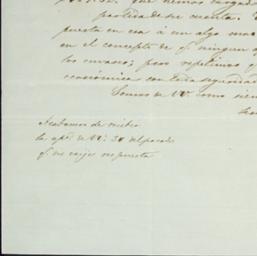 que hemos
partida de su cuenta.
puesta en esa á un algo mas
en el concepto de qe ningun
los envases; pero repetimos
económica con toda seguridad
Somos de VV. como siem
Acabamos de recibir
la apda de VV: 30 del pasado
qe no exije respuesta